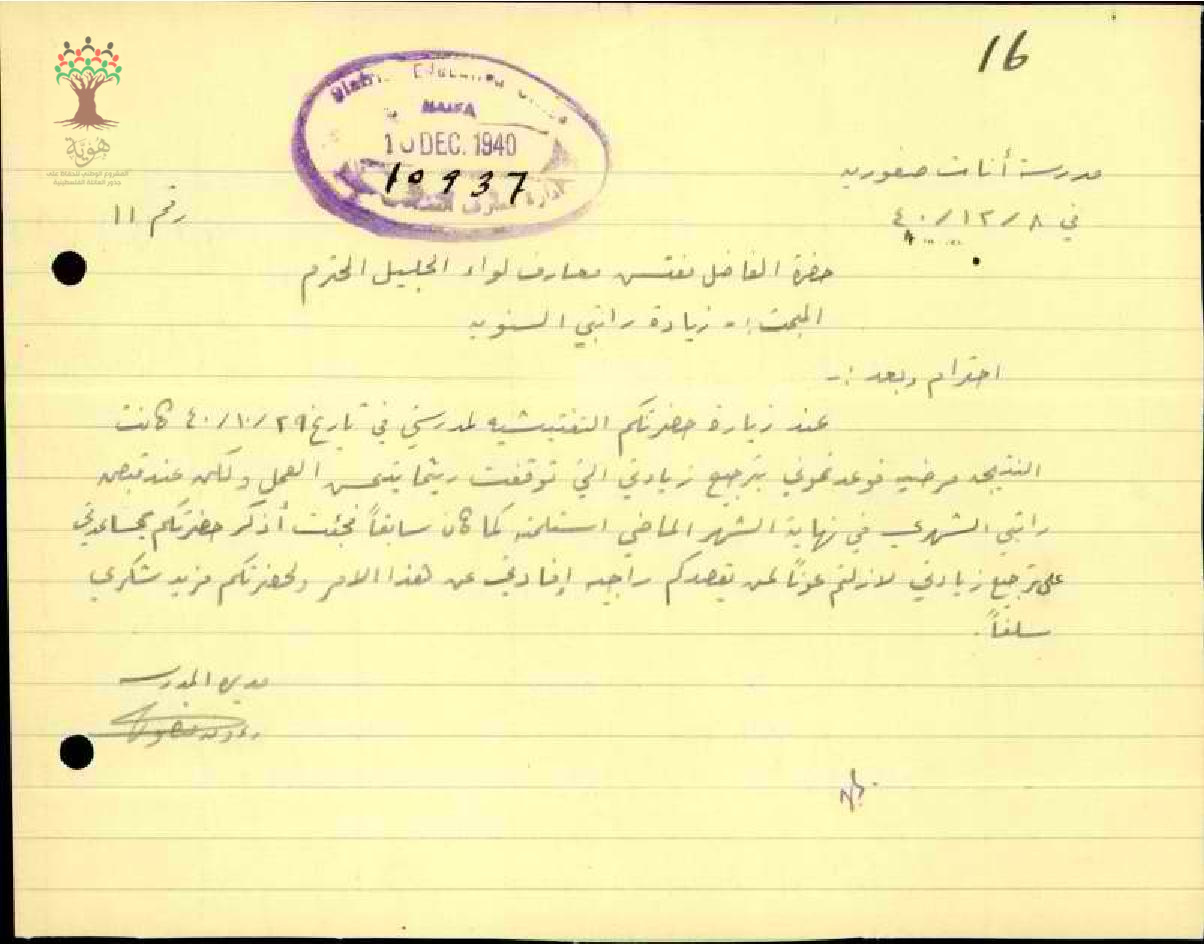 16
هوية
المشروع الوطني للحفاظ على
جذور العائلة الفلسطينية
District Education Office
HAIFA
10 DEC. 1940
10937
إدارة معارف
مدرسة أناث صفوريه
في ٤٠/١٢/٨
رقم ١١
حضرة الفاضل مفتش معارف لواء الجليل المحترم
المبحث :- زيادة راتبي السنويه
احترام وبعد :-
عند زيارة حضرتكم التفتيشيه لمدرستي في تاريخ ٤٠/١٠/٢٩ كانت
النتيجه مرضيه فوعدتموني بترجيع زيادتي التي توقفت ريثما يتحسن العمل ولكن عند قبض
راتبي الشهري في نهاية الشهر الماضي استلمته كما كان سابقاً فجئت أذكر حضرتكم بمساعدتي
على ترجيع زيادتي لازلتم عوناً لمن يقصدكم راجيه إفادتي عن هذا الامر ولحضرتكم مزيد شكري
سلفاً.
مديرة المدرسه